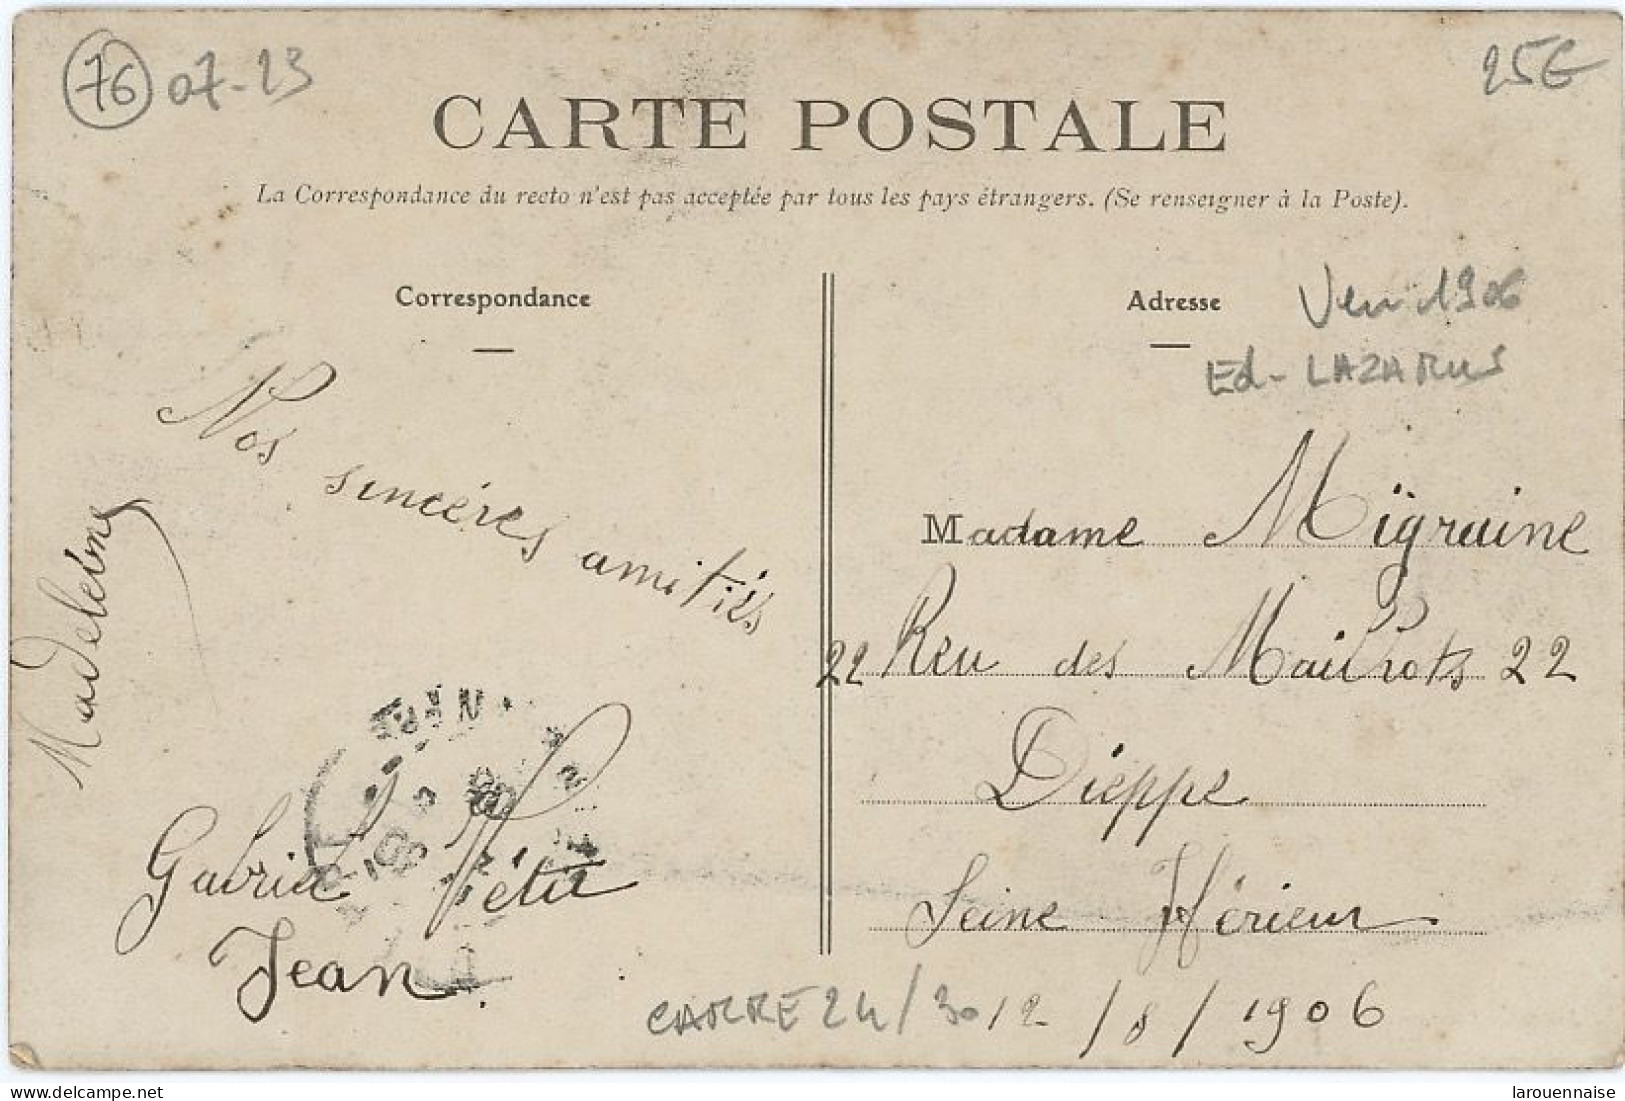 76 07-23
25€
CARTE POSTALE
La Correspondance du recto n'est pas acceptée par tous les pays étrangers. (Se renseigner à la Poste).
Correspondance
Adresse
Ver 1906
Ed- LAZARUS
Nos sincéres amitiés
Madeleine
Gabriel Pétu
Jean
Madame Migraine
22 Reu des Maillots 22
Dieppe
Seine Hérieur
CARRE 24/30
12/8/1906
larouennaise